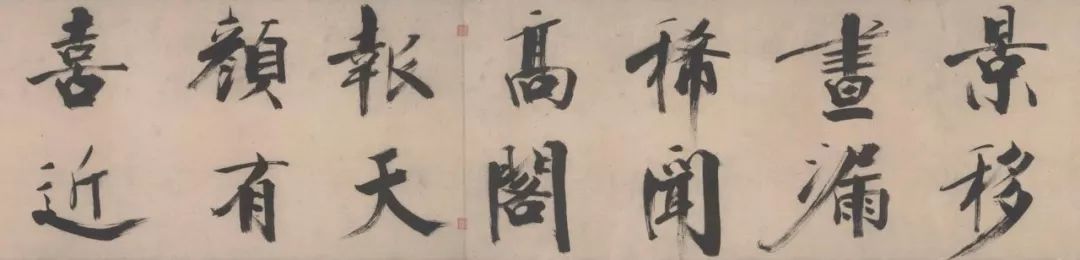 景移
晝漏
稀聞
髙閣
報天
顔有
喜近